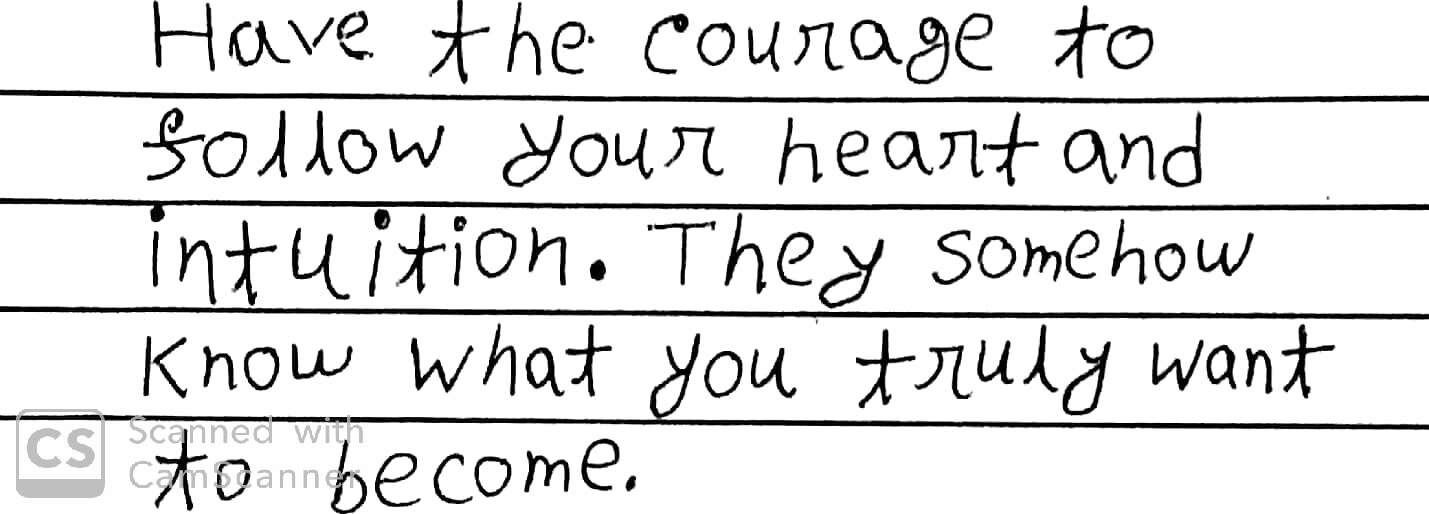 Have the courage to
follow your heart and
intuition. They somehow
know what you truly want
Scanned with
CS
CamScanner
to become.